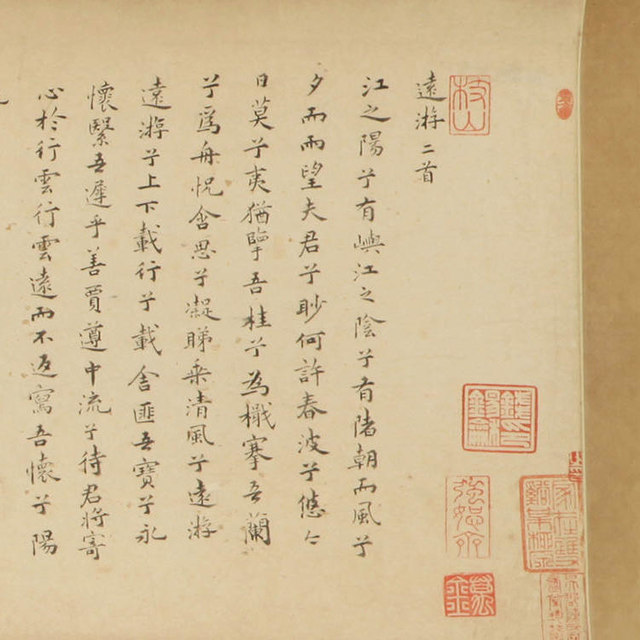 枝山
遠游二首
江之陽兮有嶼江之陰兮有陼朝而風兮
夕而雨望夫君兮眇何許春波兮悠々
日莫兮夷猶擥吾桂兮為檝搴吾蘭
兮爲舟怳含思兮凝睇乘清風兮遠游
遠游兮上下載行兮載舍匪吾寶兮永
懷繄吾遲乎善賈遵中流兮待君將寄
心於行雲行雲遠而不返寫吾懷兮陽